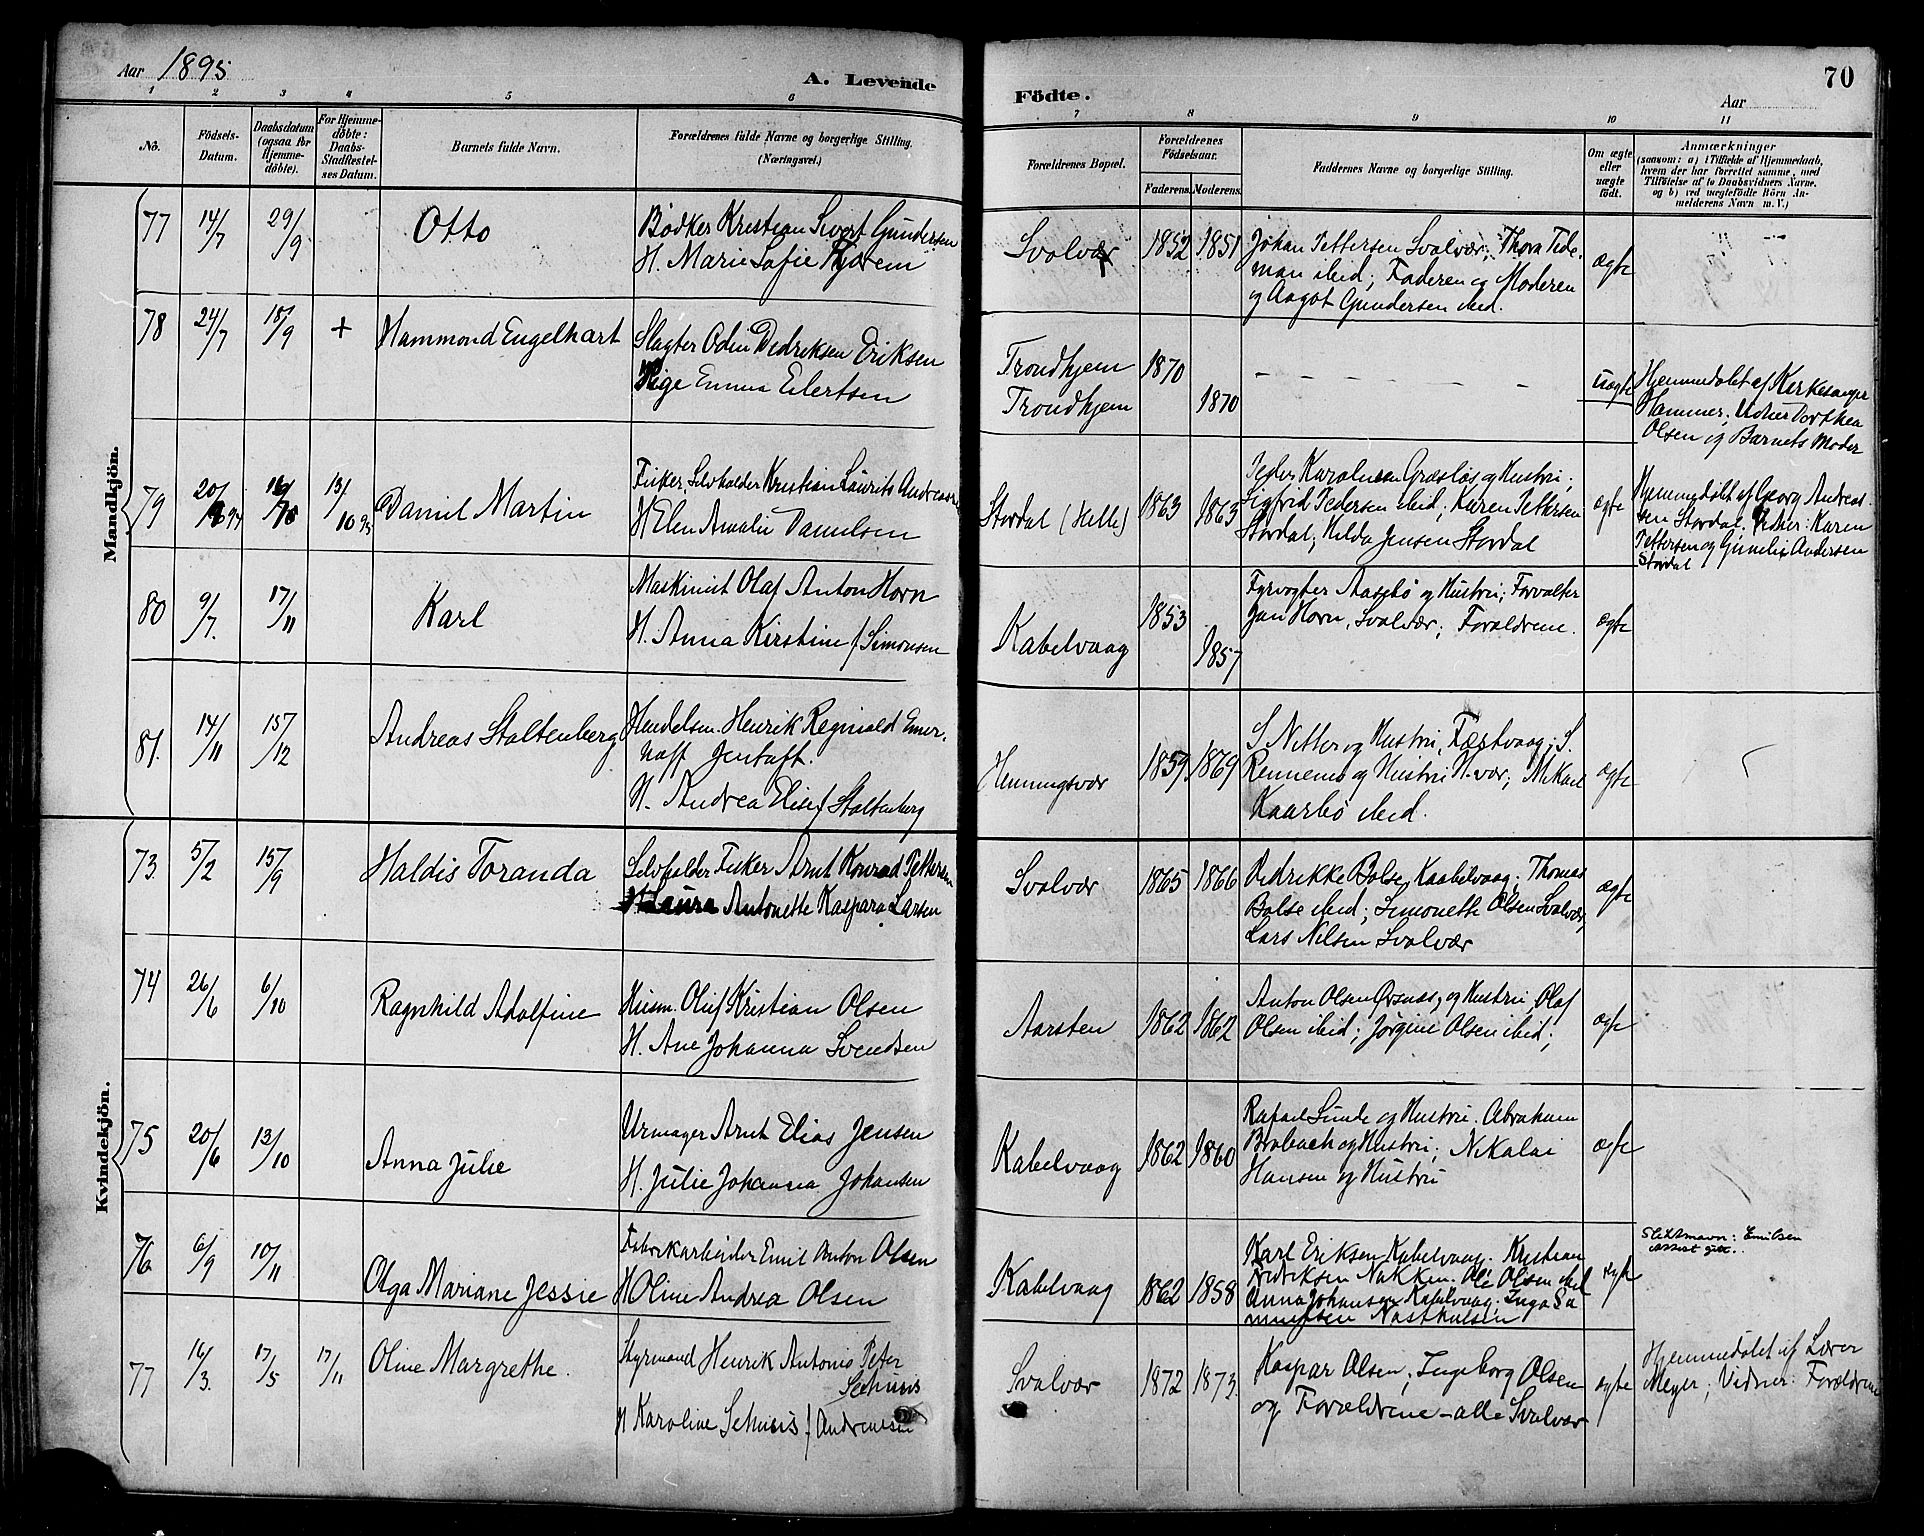 Aar 1895
A. Levende
Födte.
Aar
70
1 2 3 4 5 6 7 8 9 10 11
No.
Födsels-
Datum.
Daabsdatum
(ogsaa for
Hjemme-
döbte).
For Hjemme-
döbte:
Daabs-
Stadfæstel-
ses Datum.
Barnets fulde Navn.
Forældrenes fulde Navne og borgerlige Stilling.
(Næringsvei.)
Forældrenes Bopæl.
Forældrenes
Födselsaar.
Faderens. Moderens.
Faddernes Navne og borgerlige Stilling.
Om ægte
eller
uægte
födt.
Anmærkninger
(saasom: a) i Tilfælde af Hjemmedaab,
hvem der har forrettet samme, med
Tilföielse af to Daabsvidners Navne,
og b) ved uægtefödte Börn An-
melderens Navn m. V.)
Mandkjön.
77 14/7 29/9 Otto
Bødker Kristian Sivert Gundersen
H. Marie Sofie
Svolvær 1852 1851
Johan Pettersen Svolvær; Thora Tide-
man ibid; Faderen og Moderen
og Aagot Gundersen ibid.
ægte
78 24/7 18/9 + Hammond Engelhart
Slagter Odin Dedriksen Eriksen
Pige Emma Eilertsen
Trondhjem 1870
Trondhjem 1870
uægte
Hjemmedøbt af Kirkesanger
Hammer; Vidner Dorthea
Olsen og Barnets Moder
79 20/ 94 13/10 95 Daniel Martin
Fisker, Selvholder Kristian Laurits Andreasen
H Elen Amalie Danielsen
Stordal (Helle) 1863 1863
Peder Karolusen Græsløs og Hustru;
Sigfrid Pedersen ibid; Karen Pettersen
Stordal; Hilda Jensen Stordal
ægte
Hjemmedøbt af Georg Andreas-
sen Stordal. Vidner: Karen
Pettersen og Andersen
Stordal
80 9/7. 17/11 Karl
Maskinist Olaf Anton Horn
H. Anna Kirstine f. Simonsen
Kabelvaag 1853 1857
Fyrvogter Aasebø og Hustru; Forvalter
Jan Horn, Svolvær; Forældrene.
ægte
81. 14/11 15/12 Andreas Stoltenberg
Handelsm. Henrik Reginald Emer-
hoff Jentoft.
H. Andrea Elise f Stoltenberg
Henningsvær 1859 1869
S Netter og Hustru, Festvaag; S.
Rennemo og Hustru H-vær; Mikael
Kaarbø ibid.
ægte
Kvindekjön.
73 5/2 15/9 Haldis Toranda
Selvholder Fisker Arnt Konrad Pettersen
H Laura Antonette Kaspara Larsen
Svolvær 1865 1866
Didrikke Bolse, Kaabelvaag; Thomas
Bolse ibid; Simonette Olsen Svolvær,
Lars Nilsen Svolvær
ægte
74 26/6 6/10 Ragnhild Adolfine
Husm. Oluf Kristian Olsen
H. Ane Johanna Svendsen
Aarsten 1862 1862
Anton Olsen Ørsnæs, og Hustru, Olaf
Olsen ibid; Jørgine Olsen ibid;
ægte
75 20/6 13/10 Anna Julie
Urmager Arnt Elias Jensen
H. Julie Johanna Johansen
Kabelvaag 1862 1860
Rafael Lunde og Hustru. Abraham
Brobach og Hustru; Nikolai
Hansen og Hustru
ægte
76 6/9 10/11 Olga Mariane Jessie
Fabrikarbeider Emil Anton Olsen
H Oline Andrea Olsen
Kabelvaag 1862 1858
Karl Eriksen Kabelvaag. Kristian
Fredriksen Nakken. Ole Olsen ibid
Anna Johansen Kabelvaag; Inga Sa-
muelsen
ægte
Slektsnavn: Emilsen
77 16/3. 17/5 17/11 Oline Margrethe.
Styrmand Henrik Antonis Peter
Schusis
H Karoline Schusis f. Andreassen
Svolvær 1872 1873.
Kaspar Olsen; Ingeborg Olsen
og Forældrene – alle Svolvær
ægte
Hjemmedøbt af Lærer
Meyer; Vidner: Forældrene